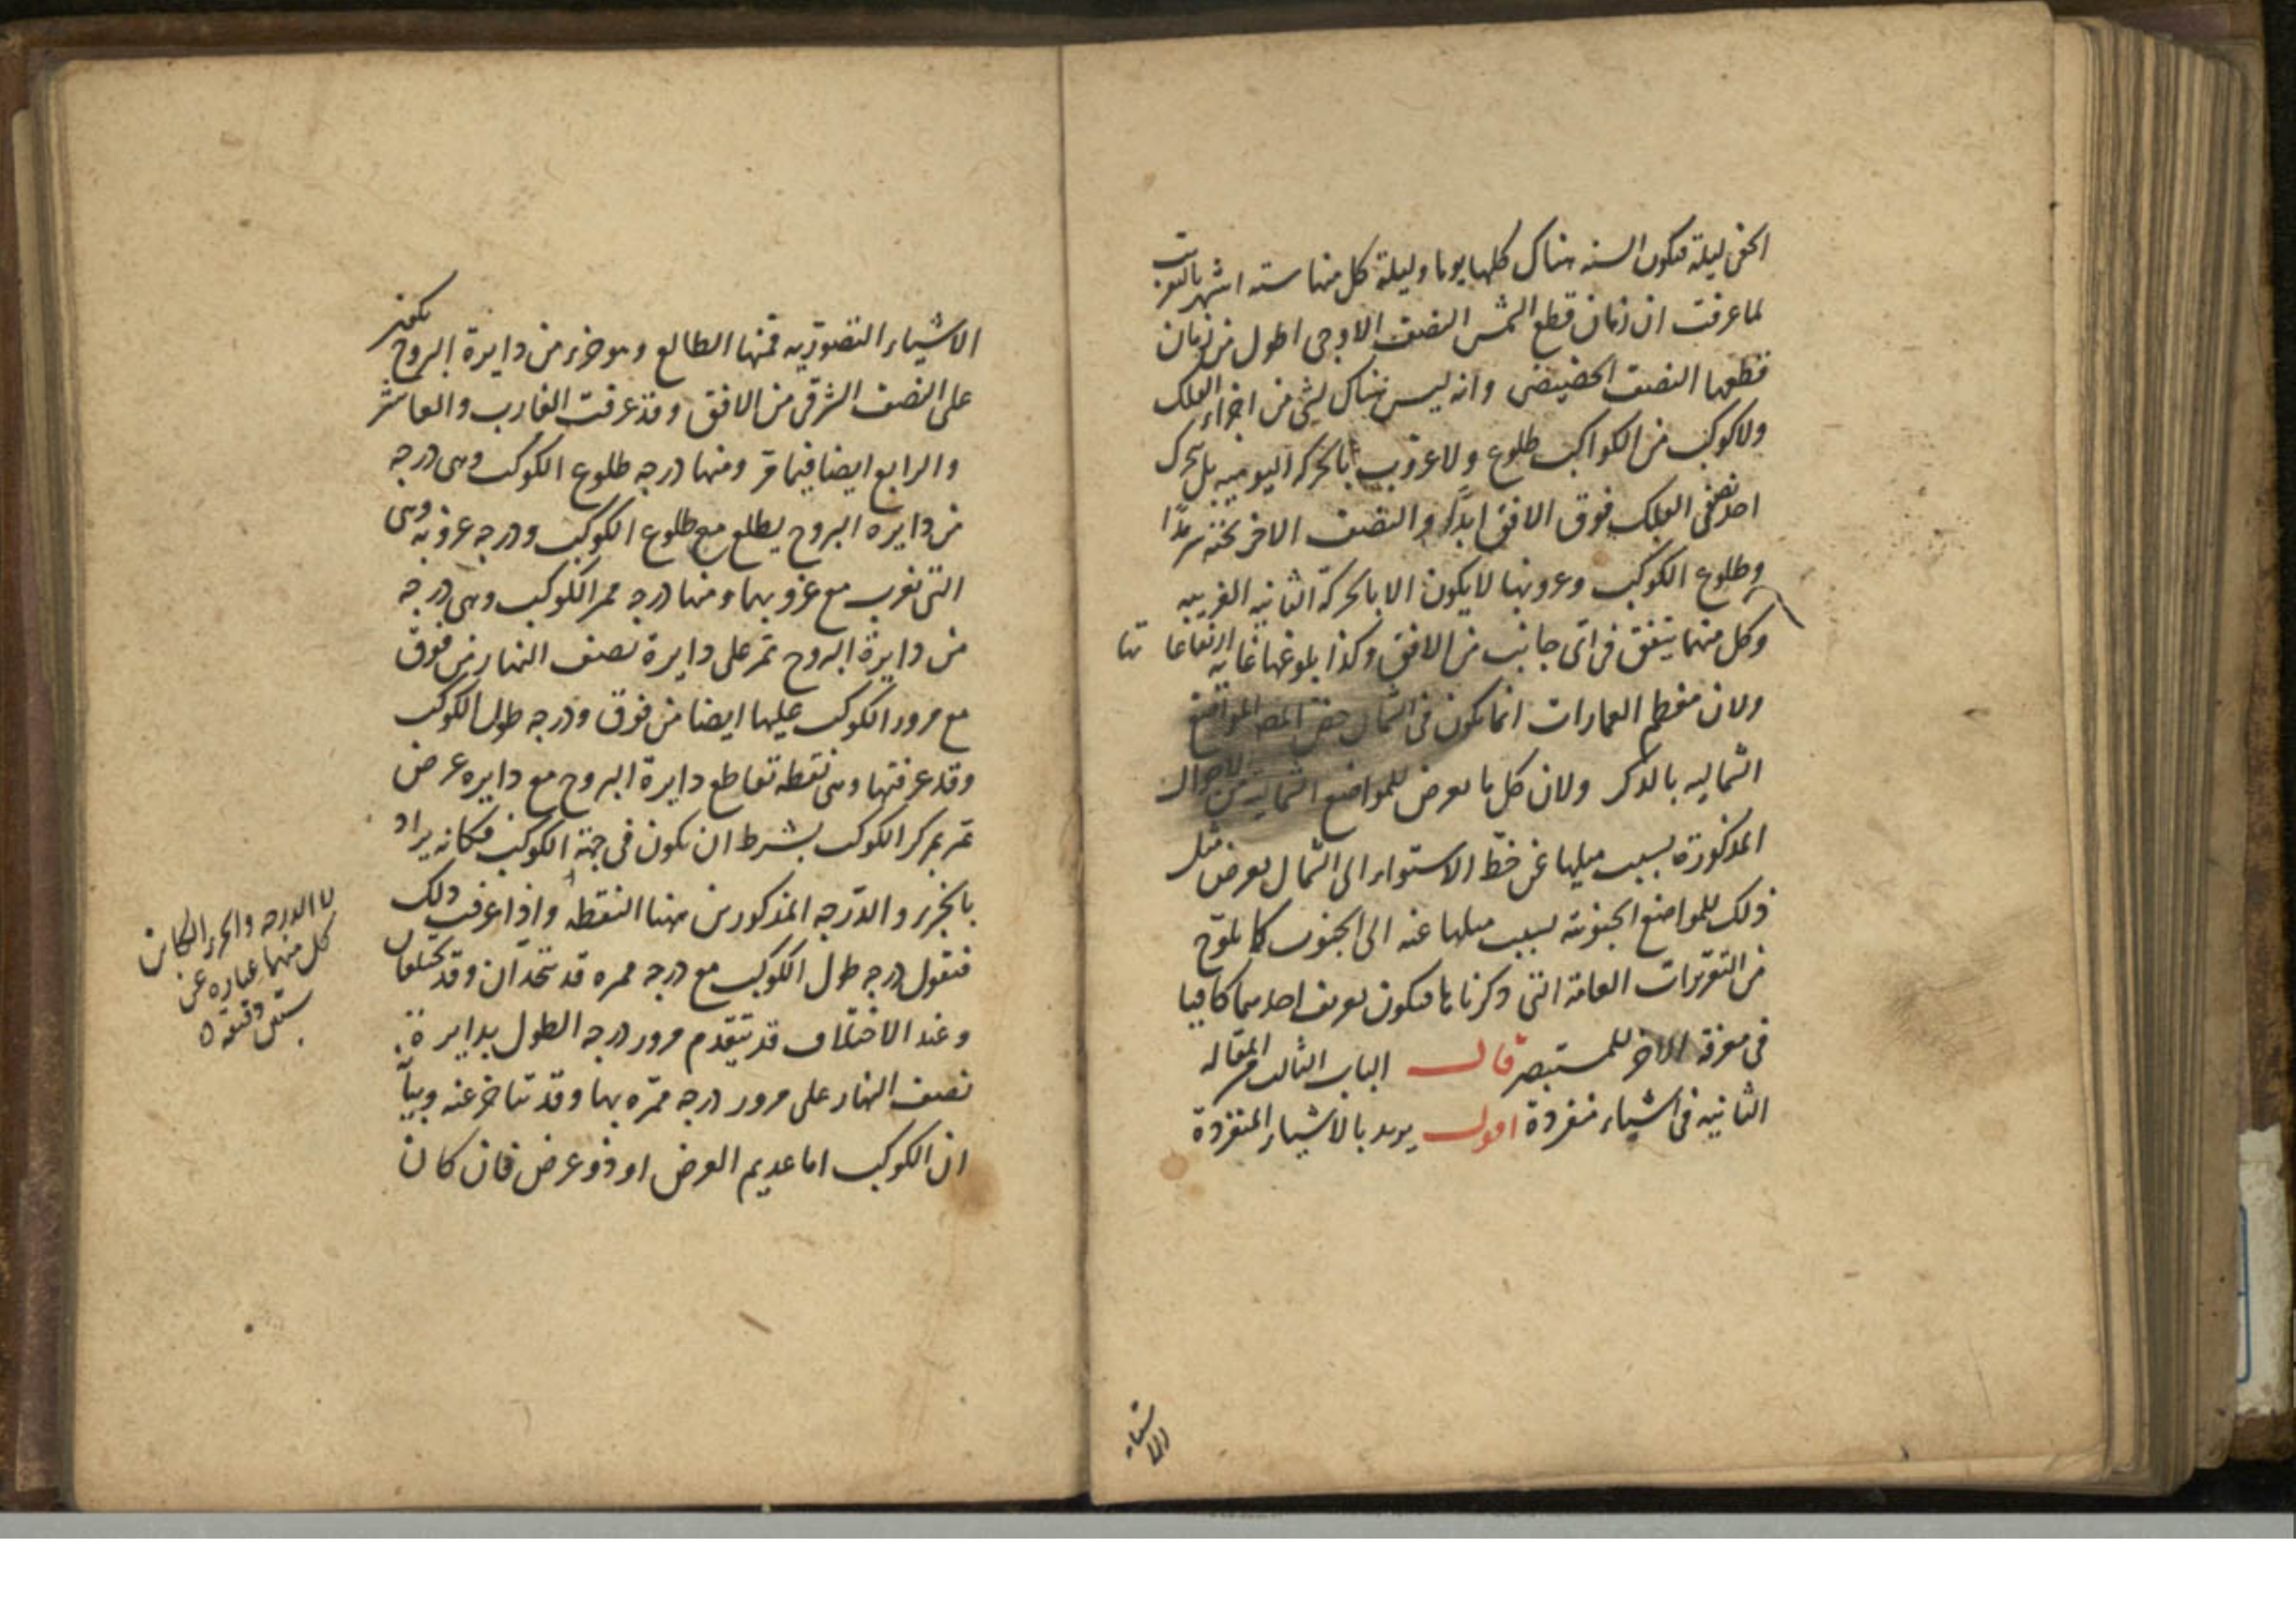 الخفى ليلة فيكون السنه هناك كلها يوما وليلة كل منها سته اشهر بالتقريب
لما عرفت ان زمان قطع الشمس النصف الاوجى اطول من زمان
قطعها النصف الحضيضى وانه ليس هناك لشى من اجزاء الفلك
ولا كوكب من الكواكب طلوع ولا غروب بالحركة اليوميه بل يتحرك
احد نصفى الفلك فوق الافق ابدا والنصف الاخر تحته سرمدا
وطلوع الكوكب وغروبها لا يكون الا بالحركة الثانيه الغربيه
وكل منهما يتفق فى اى جانب من الافق وكذا بلوغها غاية ارتفاعاتها
ولان معظم العمارات انما يكون فى الشمال خص المص المواضع
الشماليه بالذكر ولان كل ما يعرض للمواضع الشماليه من الاحوال
المذكورة بسبب ميلها عن خط الاستواء الى الشمال يعرض مثل
ذلك للمواضع الجنوبية بسبب ميلها عنه الى الجنوب كما يلوح
من التقريرات العامة التى ذكرناها فيكون تعريف احدهما كافيا
فى معرفة الاخر للمستبصر قال الباب الثالث من المقاله
الثانيه فى اشياء منفردة اقول يريد بالاشياء المنفردة
الاشياء
الاشياء التصوريه فمنها الطالع وهو جزء من دايرة البروج يكون
على النصف الشرقى من الافق وقد عرفت الغارب والعاشر
والرابع ايضا فيما مر ومنها درجه طلوع الكوكب وهى درجه
من دايره البروج يطلع مع طلوع الكوكب ودرجه غروبه وهى
التى تغرب مع غروبها ومنها درجه ممر الكوكب وهى درجه
من دايرة البروج تمر على دايرة نصف النهار من فوق
مع مرور الكوكب عليها ايضا من فوق ودرجه طول الكوكب
وقد عرفتها وهى نقطه تقاطع دايرة البروج مع دايره عرض
تمر بمركز الكوكب بشرط ان يكون فى جهة الكوكب فكانه يراد
بالجزء والدرجه المذكورين ههنا النقطه واذا عرفت ذلك
فنقول درجه طول الكوكب مع درجه ممره قد تتحدان وقد تختلفان
وعند الاختلاف قد يتقدم مرور درجه الطول بدايرة
نصف النهار على مرور درجه ممره بها وقد تتاخر عنه وبيا
ان الكوكب اما عديم العرض او ذو عرض فان كان
لا الدرجه والجزء اللذان
كل منهما عباره عن
ستين دقيقه